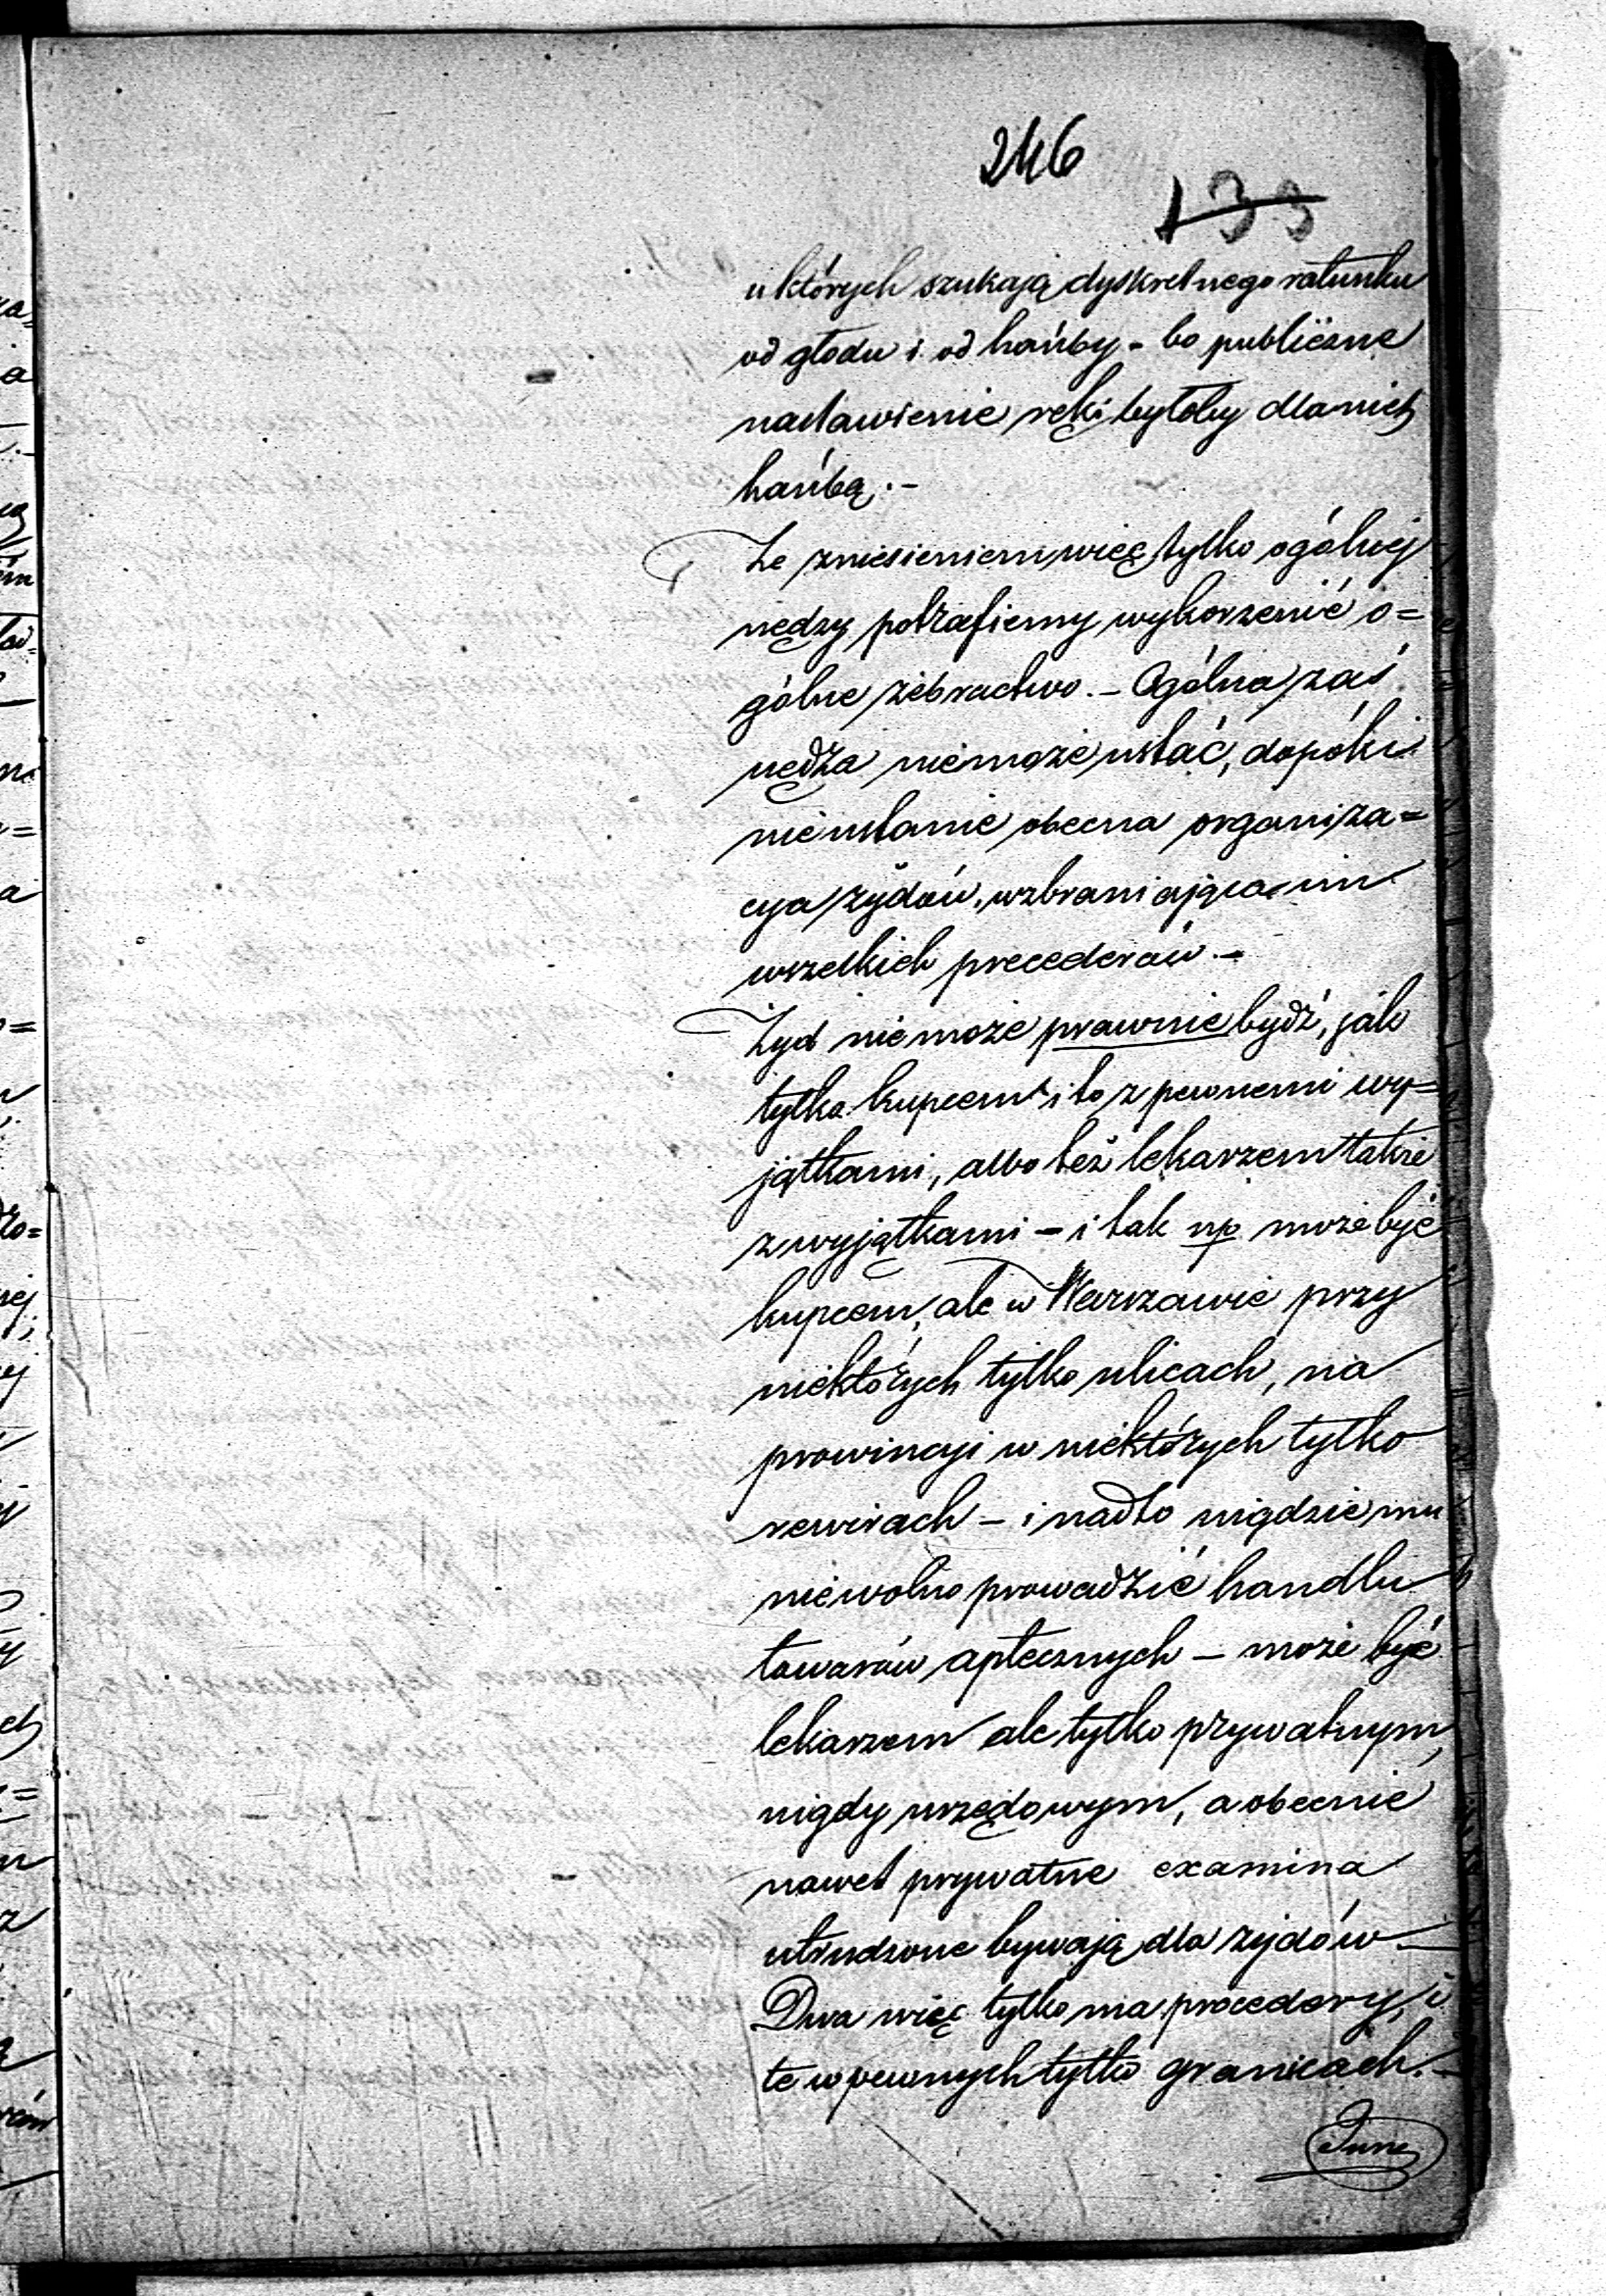 246
133
u których szukają dyskretnego ratunku
od głodu i od hańby - bo publiczne
nadstawienie ręki byłoby dla nich
hańbą. -
Ze zniesieniem więc tylko ogólnej
nędzy potrafiemy wykorzenić o=
gólne żebractwo. - Ogólna zaś
nędza nie może ustać, dopóki
nie ustanie obecna organiza=
cya żydów, wzbraniająca im
wszelkich precederów. -
Żyd nie może prawnie bydź, jak
tylko kupcem i to z pewnemi wy=
jątkami, albo też lekarzem także
z wyjątkami - i tak np może być
kupcem, ale w Warszawie przy
niektórych tylko ulicach, na
prowincyi w niektórych tylko
rewirach - i nadto nigdzie mu
nie wolno prowadzić handlu
towarów aptecznych - może być
lekarzem ale tylko prywatnym,
nigdy urzędowym, a obecnie
nawet prywatne examina
utrudzone bywają dla żydów -
Dwa więc tylko ma procedery, i
te w pewnych tylko granicach. -
Inne